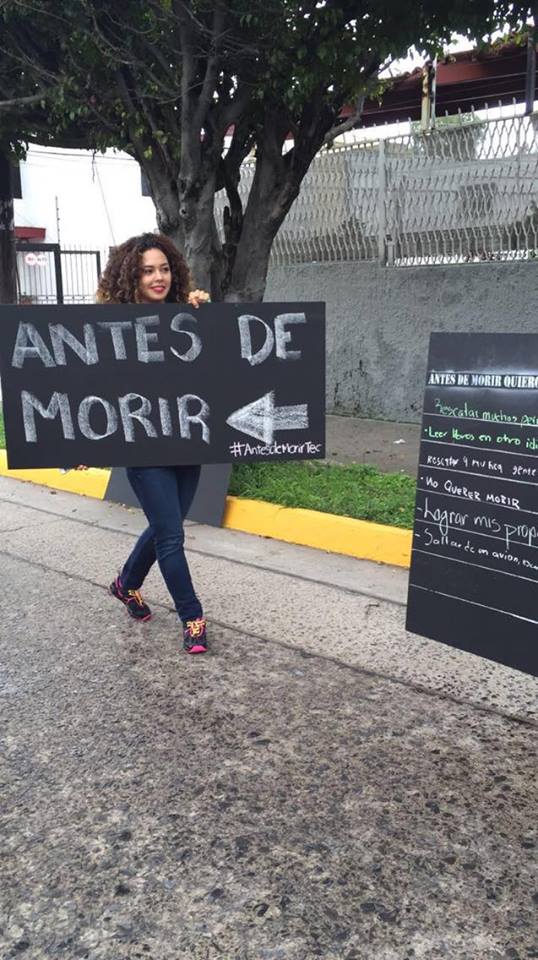 ANTES DE
MORIR
#AntesdeMorirTec
ANTES DE MORIR QUIERO
Rescatar muchos
- Leer libros en otro
Rescatar a mucha gente
- NO QUERER MORIR
- Lograr mis
- Saltar de un avión,